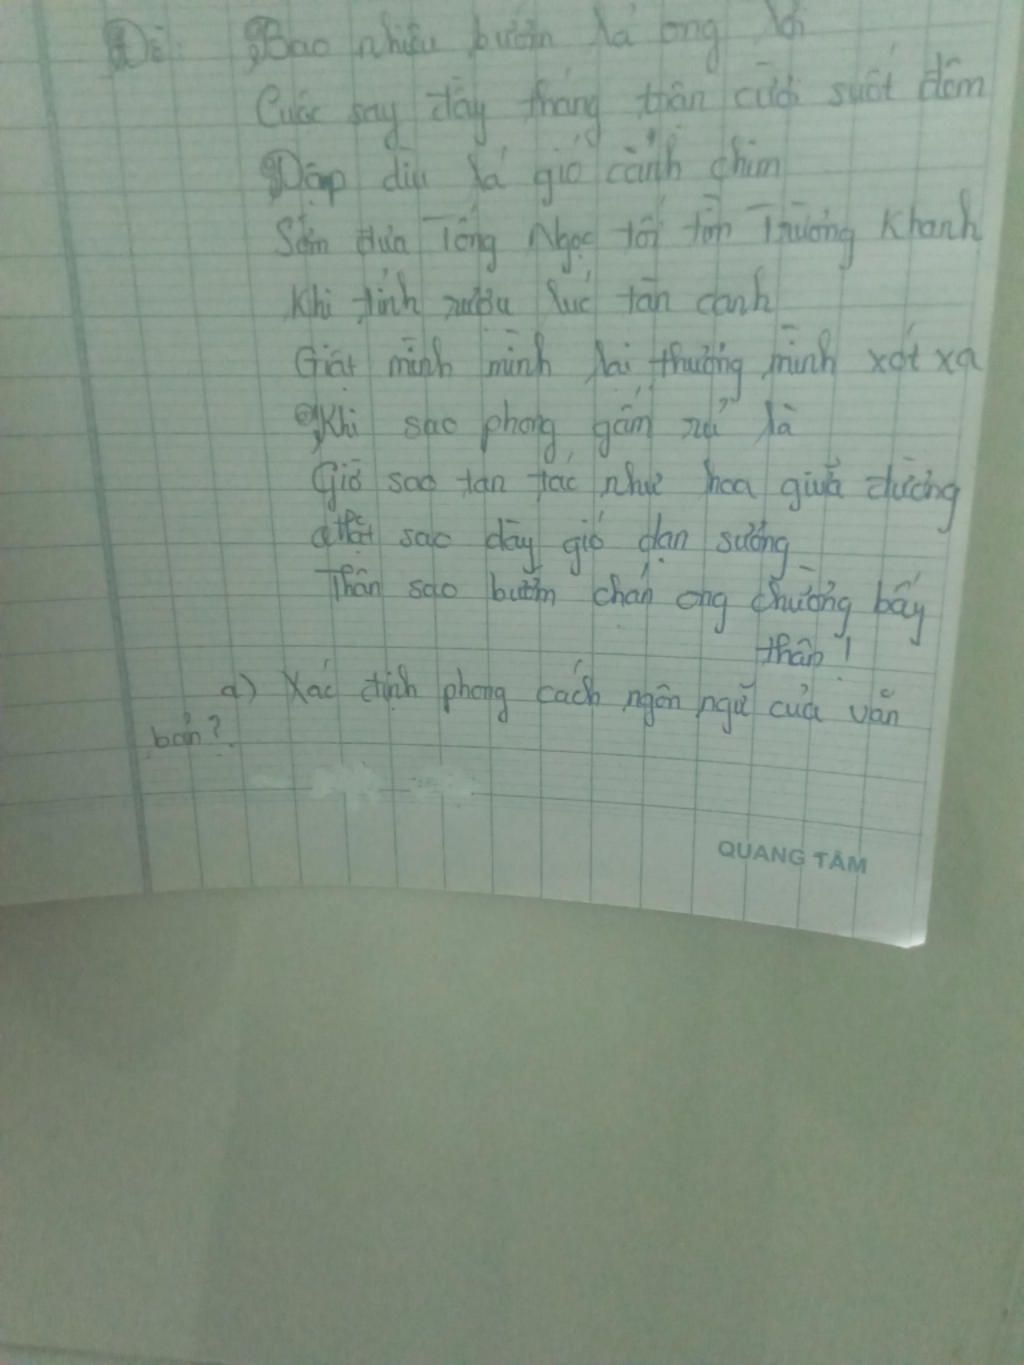 Đề: Bao nhiêu bướm lả ong lơi
Cuộc say đầy tháng trận cười suốt đêm
Dập dìu lá gió cành chim
Sớm đưa Tống Ngọc tối tìm Trường Khanh
Khi tỉnh rượu lúc tàn canh
Giật mình mình lại thương mình xót xa
Khi sao phong gấm rủ là
Giờ sao tan tác như hoa giữa đường
Mặt sao dày gió dạn sương
Thân sao bướm chán ong chường bấy
thân!
a) Xác định phong cách ngôn ngữ của văn
bản?
QUANG TÂM